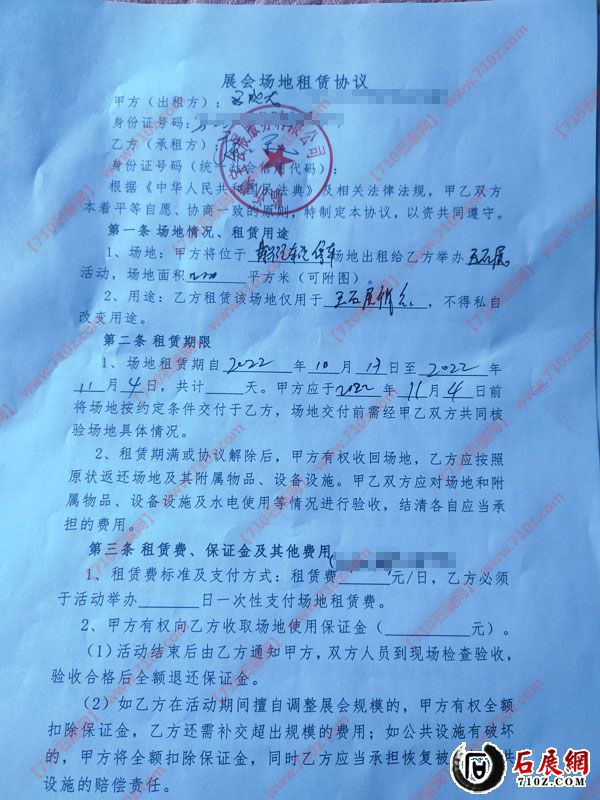 展会场地租赁协议
甲方（出租方）：
身份证号码：
乙方（承租方）
身份证号码（统一社会信用代码）：
根据《中华人民共和国民法典》及相关法律法规，甲乙双方
本着平等自愿、协商一致的原则，特制定本协议，以资共同遵守。
第一条 场地情况、租赁用途
1、场地：甲方将位于 场地出租给乙方举办 玉石展
活动，场地面积 平方米（可附图）。
2、用途：乙方租赁该场地仅用于 玉石展销会，不得私自
改变用途。
第二条 租赁期限
1、场地租赁期自 2022 年 10 月 13 日至 2022 年
11 月 4 日，共计____天。甲方应于 2022 年 11 月 4 日前
将场地按约定条件交付于乙方，场地交付前需经甲乙双方共同核
验场地具体情况。
2、租赁期满或协议解除后，甲方有权收回场地，乙方应按照
原状返还场地及其附属物品、设备设施。甲乙双方应对场地和附
属物品、设备设施及水电使用等情况进行验收，结清各自应当承
担的费用。
第三条 租赁费、保证金及其他费用
1、租赁费标准及支付方式：租赁费 元/日，乙方必须
于活动举办______日一次性支付场地租赁费。
2、甲方有权向乙方收取场地使用保证金（________元）。
（1）活动结束后由乙方通知甲方，双方人员到现场检查验收，
验收合格后全额退还保证金。
（2）如乙方在活动期间擅自调整展会规模的，甲方有权全额
扣除保证金，乙方还需补交超出规模的费用；如公共设施有破坏
的，甲方将全额扣除保证金，同时乙方应当承担恢复被 共
设施的赔偿责任。
【710石展网】www.710z.com
石展網
710z.com